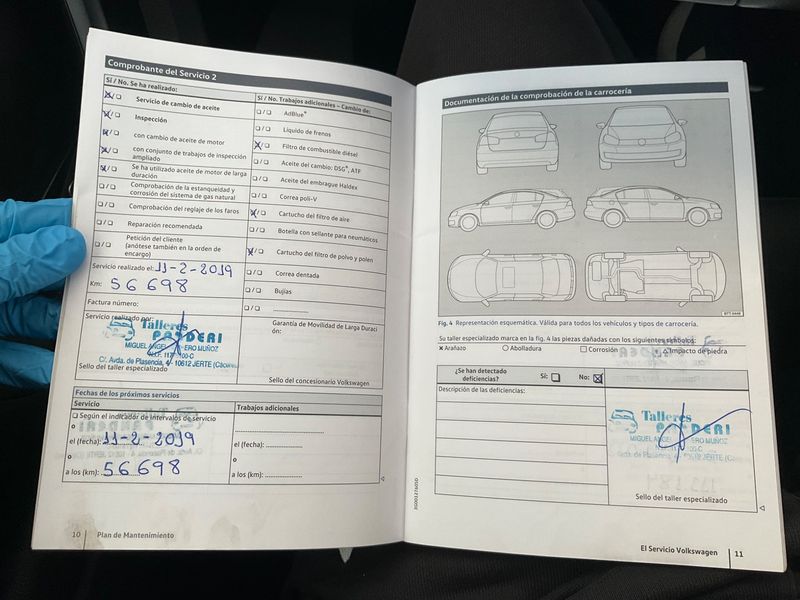 Comprobante del Servicio 2
Sí / No. Se ha realizado:
Servicio de cambio de aceite
Inspección
con cambio de aceite de motor
con conjunto de trabajos de inspección
ampliado
Se ha utilizado aceite de motor de larga
duración
Comprobación de la estanqueidad y
corrosión del sistema de gas natural
Comprobación del reglaje de los faros
Reparación recomendada
Petición del cliente
(anótese también en la orden de
encargo)
Servicio realizado el: 11-2-2019
Km: 56698
Factura número:
Servicio realizado por:
Talleres
PANDERI
MIGUEL ANGEL ERO MUÑOZ
C/. Avda. de Plasencia, 10612 JERTE (Cáceres)
Sello del taller especializado
Sí / No. Trabajos adicionales – Cambio de:
AdBlue®
Líquido de frenos
Filtro de combustible diésel
Aceite del cambio: DSG®, ATF
Aceite del embrague Haldex
Correa poli-V
Cartucho del filtro de aire
Botella con sellante para neumáticos
Cartucho del filtro de polvo y polen
Correa dentada
Bujías
Garantía de Movilidad de Larga Duraci
ón:
Sello del concesionario Volkswagen
Fechas de los próximos servicios
Servicio
Trabajos adicionales
Según el indicador de intervalos de servicio
o
el (fecha): 11-2-2019
o
a los (km): 56698
el (fecha):
o
a los (km):
10 Plan de Mantenimiento
Documentación de la comprobación de la carrocería
Fig. 4 Representación esquemática. Válida para todos los vehículos y tipos de carrocería.
Su taller especializado marca en la fig. 4 las piezas dañadas con los siguientes símbolos:
Arañazo Abolladura Corrosión Impacto de piedra
¿Se han detectado
deficiencias?
Sí: No:
Descripción de las deficiencias:
Talleres
PANDERI
MIGUEL ANGEL ERO MUÑOZ
Avda. de Plasencia, JERTE
Sello del taller especializado
El Servicio Volkswagen 11